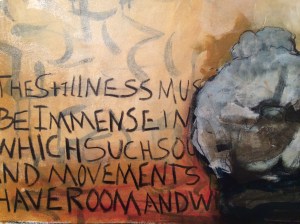 THE STILLNESS MUS
BE IMMENSE IN
WHICH SUCH SOU
AND MOVEMENTS
HAVE ROOM AND W